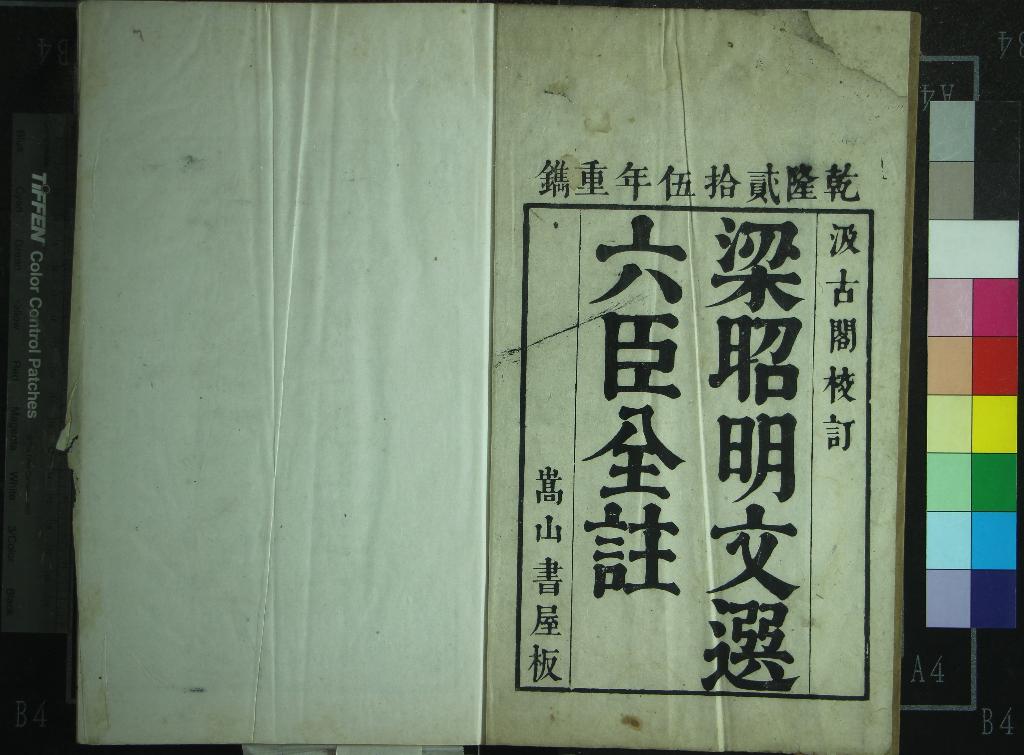 乾隆貳拾伍年重鐫
汲古閣校訂
梁昭明文選
六臣全註
嵩山書屋板
TIFFEN Color Control Patches
A4
B4
B4